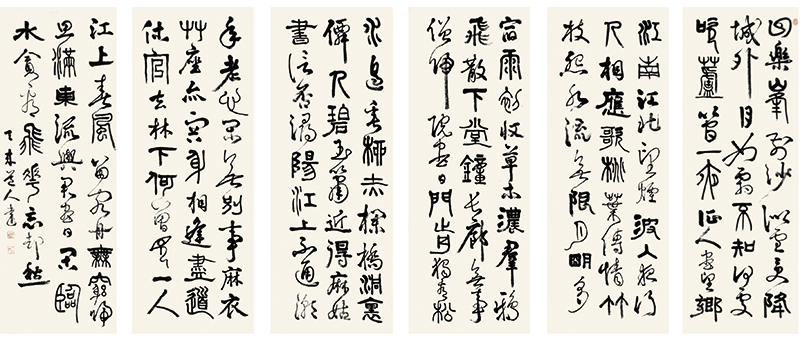 回樂峯前沙似雪受降
城外月如霜不知何處
吹蘆管一夜征人盡望鄉
江南江北望煙波入夜行
人相應歌桃葉傳情竹
枝怨水流無限月明多
宿雨初收草木濃羣鴉
飛散下堂鐘長廊無事
僧歸院盡日門前獨看松
水邊垂柳赤欄橋洞裏
僊人碧玉簫近得麻姑
書信否潯陽江上不通潮
年老心閒無別事麻衣
艸座亦容身相逢盡道
休官去林下何曾見一人
江上春風留客舟無窮歸
思滿東流與君盡日閒臨
水貪看飛花忘却愁